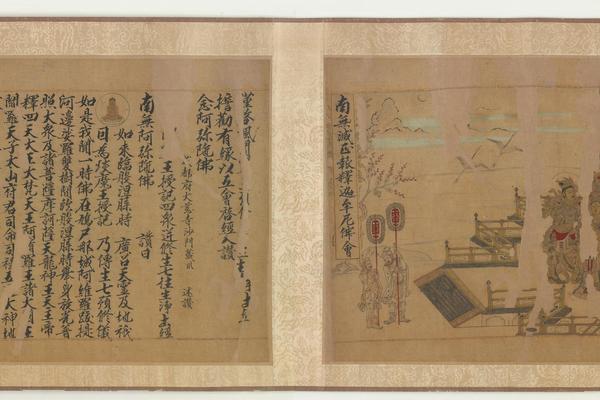 誓勸有緣以五會啓經入讚
念阿弥陁佛
府大聖慈寺沙門藏川 述讚
王授記四衆逆修生七往生淨土經
南無阿弥陁佛 讚曰
如来臨般涅槃時 廣召天靈及地祇
因為琰魔王授記 乃傳生七預修儀
如是我聞一時佛在鳩尸那城阿維羅跋提
河邊娑羅雙樹間臨般涅槃時舉身放光普
照大衆及諸菩薩摩訶薩天龍神王天王帝
釋四天大王大梵天王阿脩羅王諸大國王
閻羅天子太山府君司命司祿五 大神地